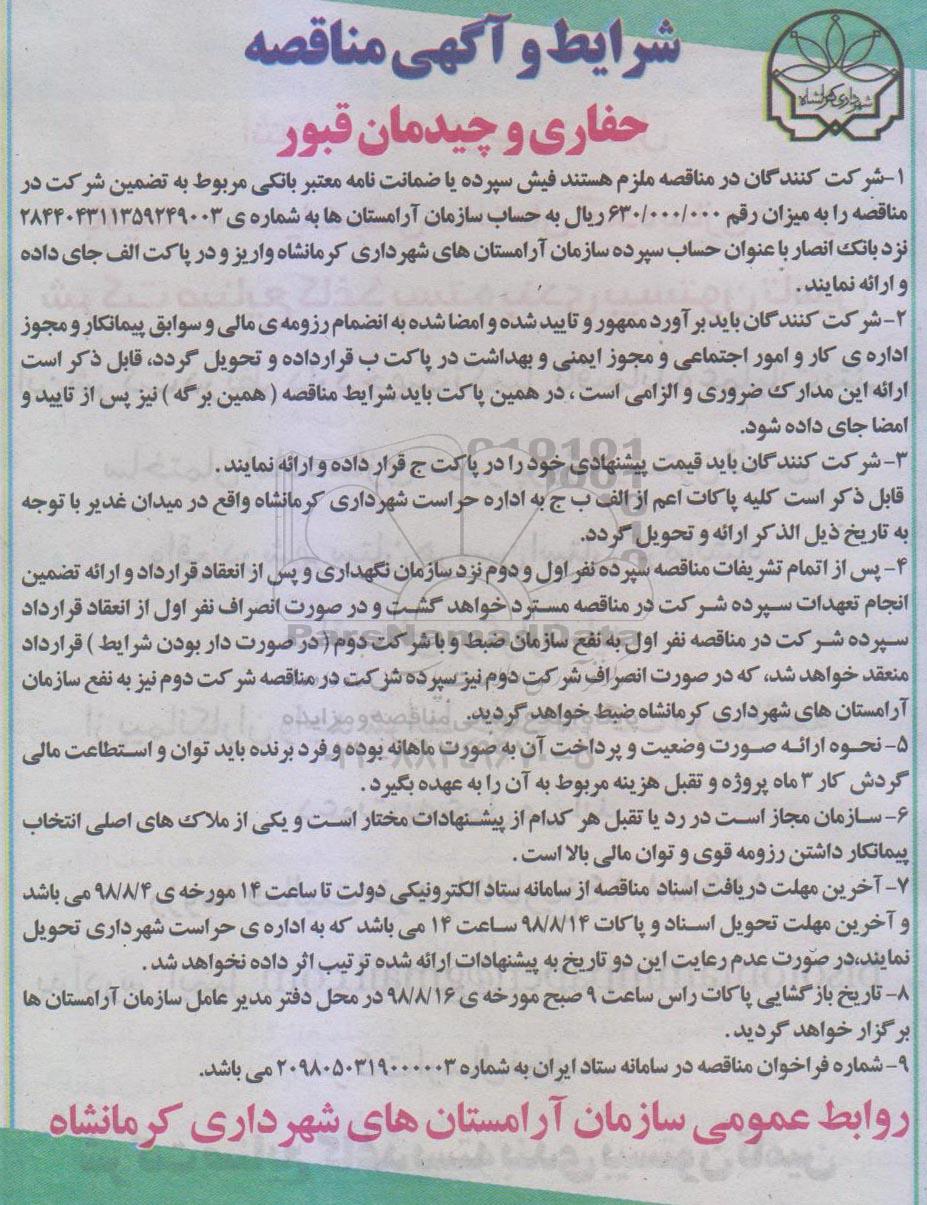 شرایط و آگهی مناقصه
شهرداری کرمانشاه
حفاری و چیدمان قبور
۱-شرکت کنندگان در مناقصه ملزم هستند فیش سپرده یا ضمانت نامه معتبر بانکی مربوط به تضمین شرکت در
مناقصه را به میزان رقم ۶۳۰/۰۰۰/۰۰۰ ریال به حساب سازمان آرامستان ها به شماره ی ۲۸۴۴۰۴۳۱۱۳۵۹۲۴۹۰۰۳
نزد بانک انصار با عنوان حساب سپرده سازمان آرامستان های شهرداری کرمانشاه واریز و در پاکت الف جای داده
و ارائه نمایند .
۲-شرکت کنندگان باید برآورد ممهور و تایید شده و امضا شده به انضمام رزومه ی مالی و سوابق پیمانکار و مجوز
اداره ی کار و امور اجتماعی و مجوز ایمنی و بهداشت در پاکت ب قرارداده و تحویل گردد، قابل ذکر است
ارائه این مدارک ضروری و الزامی است ، در همین پاکت باید شرایط مناقصه ( همین برگه ) نیز پس از تایید و
امضا جای داده شود.
۳- شرکت کنندگان باید قیمت پیشنهادی خود را در پاکت ج قرار داده و ارائه نمایند .
قابل ذکر است کلیه پاکات اعم از الف ب ج به اداره حراست شهرداری کرمانشاه واقع در میدان غدیر با توجه
به تاریخ ذیل الذکر ارائه و تحویل گردد.
۴- پس از اتمام تشریفات مناقصه سپرده نفر اول و دوم نزد سازمان نگهداری و پس از انعقاد قرارداد و ارائه تضمین
انجام تعهدات سپرده شرکت در مناقصه مسترد خواهد گشت و در صورت انصراف نفر اول از انعقاد قرارداد
سپرده شرکت در مناقصه نفر اول به نفع سازمان ضبط و با شرکت دوم ( در صورت دار بودن شرایط ) قرارداد
منعقد خواهد شد، که در صورت انصراف شرکت دوم نیز سپرده شرکت در مناقصه شرکت دوم نیز به نفع سازمان
آرامستان های شهرداری کرمانشاه ضبط خواهد گردید.
۵- نحوه ارائه صورت وضعیت و پرداخت آن به صورت ماهانه بوده و فرد برنده باید توان و استطاعت مالی
گردش کار ۳ ماه پروژه و تقبل هزینه مربوط به آن را به عهده بگیرد .
۶- سازمان مجاز است در رد یا تقبل هر کدام از پیشنهادات مختار است و یکی از ملاک های اصلی انتخاب
پیمانکار داشتن رزومه قوی و توان مالی بالا است .
۷- آخرین مهلت دریافت اسناد مناقصه از سامانه ستاد الکترونیکی دولت تا ساعت ۱۴ مورخه ی ۹۸/۸/۴ می باشد
و آخرین مهلت تحویل اسناد و پاکات ۹۸/۸/۱۴ ساعت ۱۴ می باشد که به اداره ی حراست شهرداری تحویل
نمایند،در صورت عدم رعایت این دو تاریخ به پیشنهادات ارائه شده ترتیب اثر داده نخواهد شد .
۸- تاریخ بازگشایی پاکات راس ساعت ۹ صبح مورخه ی ۹۸/۸/۱۶ در محل دفتر مدیر عامل سازمان آرامستان ها
برگزار خواهد گردید .
۹- شماره فراخوان مناقصه در سامانه ستاد ایران به شماره ۲۰۹۸۰۵۰۳۱۹۰۰۰۰۰۳ می باشد.
روابط عمومی سازمان آرامستان های شهرداری کرمانشاه
ParsNamadData